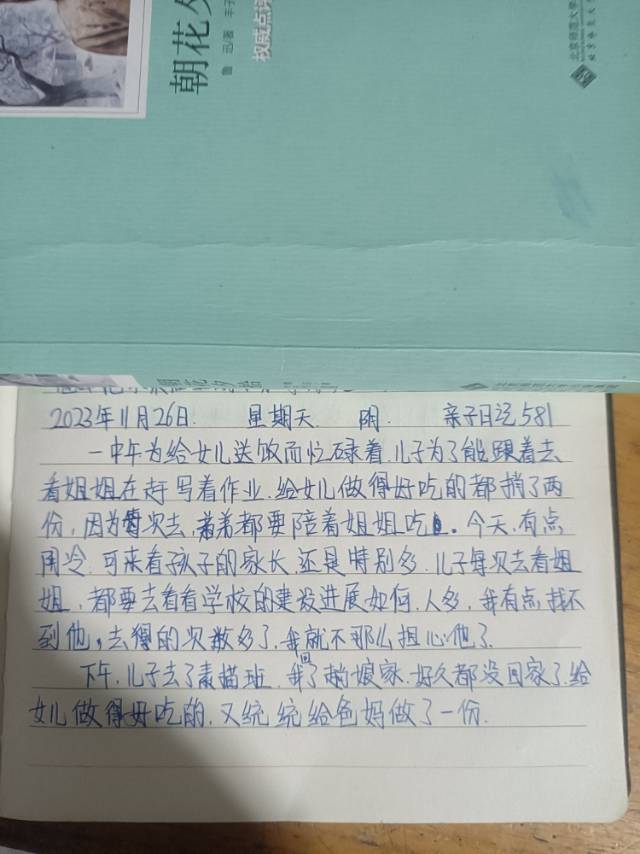 朝花夕
鲁迅/著 丰子
权威点评
北京师范大学
2023年11月26日. 星期天. 阴. 亲子日记581
一中午为给女儿送饭而忙碌着.儿子为了能跟着去
看姐姐在赶写着作业.给女儿做得好吃的都捎了两
份,因为每次去,弟弟都要陪着姐姐吃.今天,有点
阴冷.可来看孩子的家长,还是特别多.儿子每次去看姐
姐,都要去看看学校的建设进展如何.人多,我有点找不
到他,去得的次数多了.我就不那么担心他了.
下午,儿子去了素描班.我回了趟娘家.好久都没回家了.给
女儿做得好吃的,又统统给爸妈做了一份.